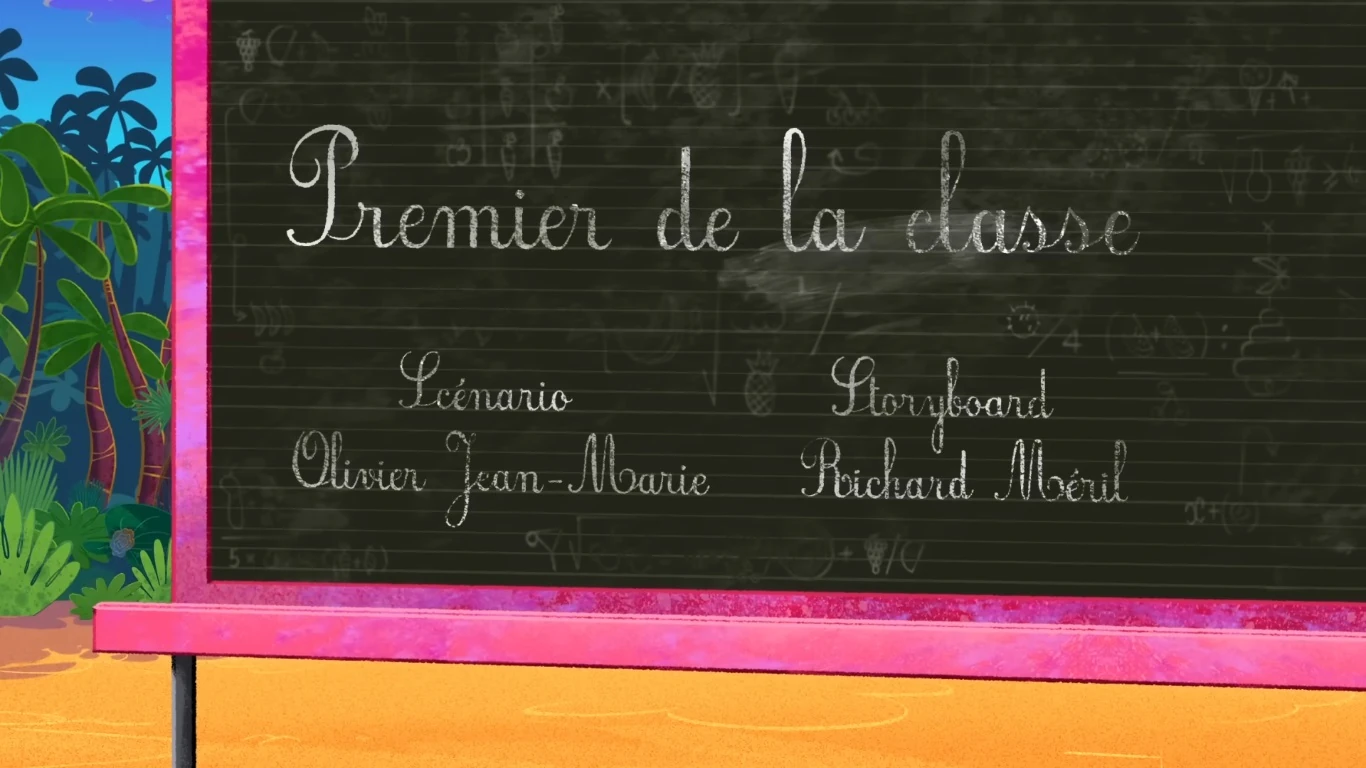 Premier de la classe
Scénario
Olivier Jean-Marie
Storyboard
Richard Méril